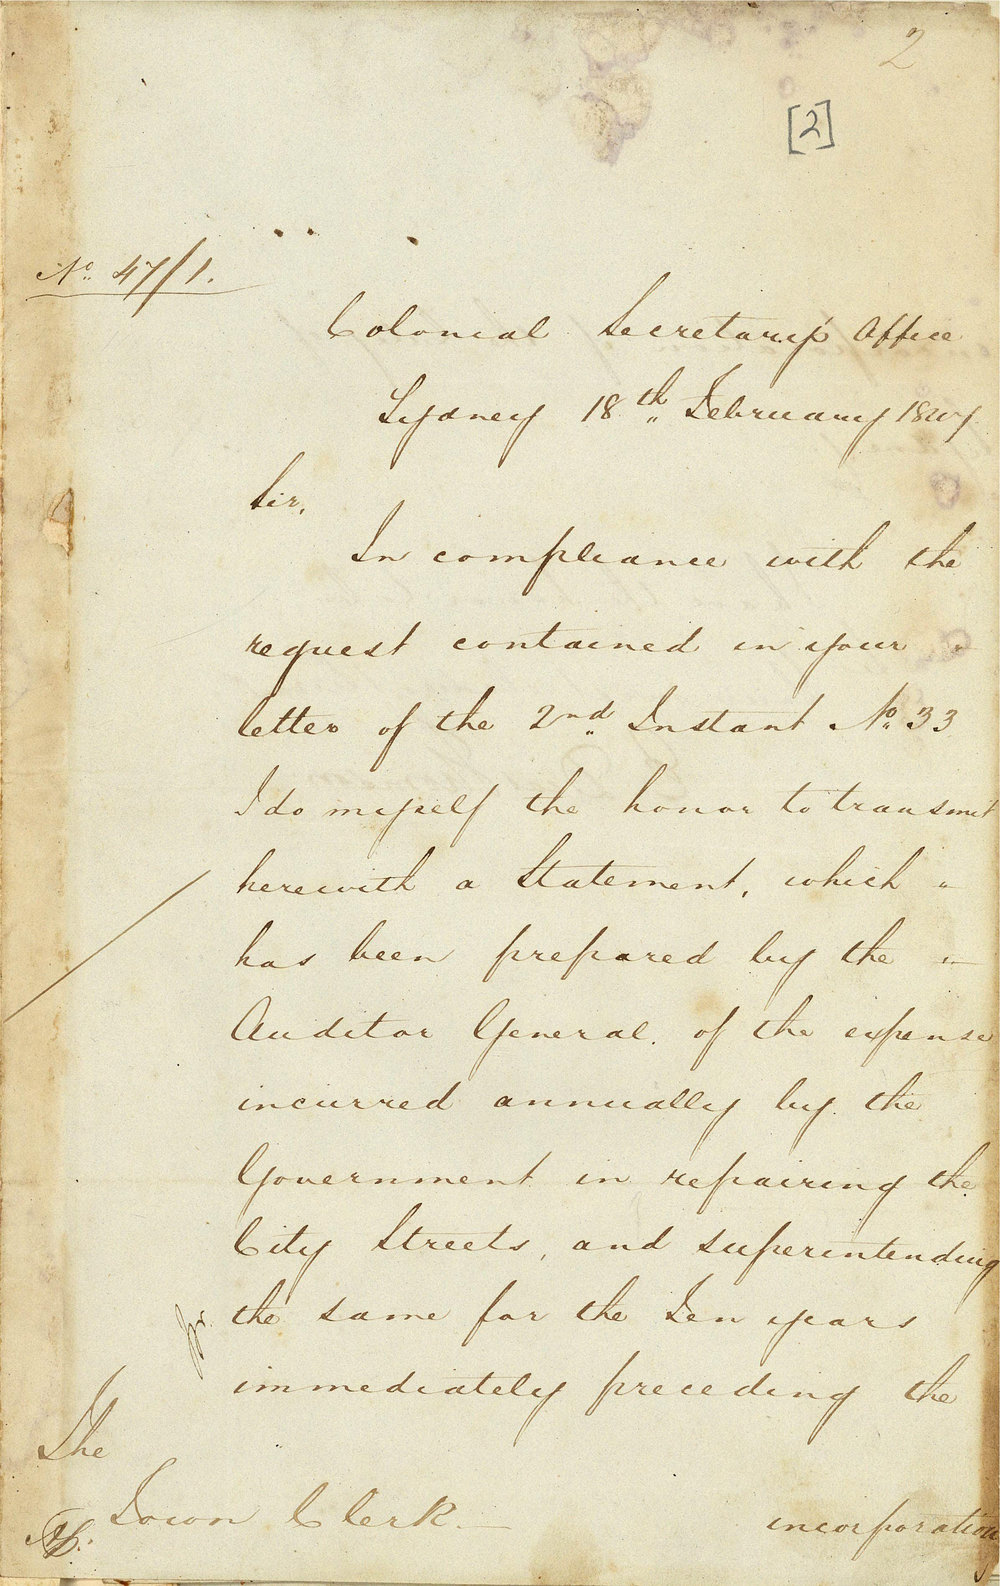 2
[2]
No. 47/1.
Colonial Secretary's Office
Sydney 18th February 1847
Sir,
In compliance with the
request contained in your
letter of the 2nd Instant No. 33
I do myself the honor to transmit
herewith a Statement, which
has been prepared by the
Auditor General. of the expense
incurred annually by the
Government in repairing the
City Streets, and superintending
the same for the Ten years
immediately preceding the
The
Town Clerk.
incorporation